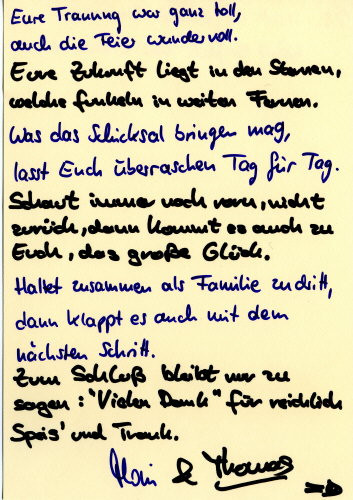 Eure Trauung war ganz toll,
auch die Feier wundervoll.
Eure Zukunft liegt in den Sternen,
welche funkeln in weiten Fernen.
Was das Schicksal bringen mag,
lasst Euch überraschen Tag für Tag.
Schaut immer nach vorn, nicht
zurück, dann kommt es auch zu
Euch, das große Glück.
Haltet zusammen als Familie zu dritt,
dann klappt es auch mit dem
nächsten Schritt.
Zum Schluß bleibt nur zu
sagen: "Vielen Dank" für reichlich
Speis' und Trank.
& Thomas